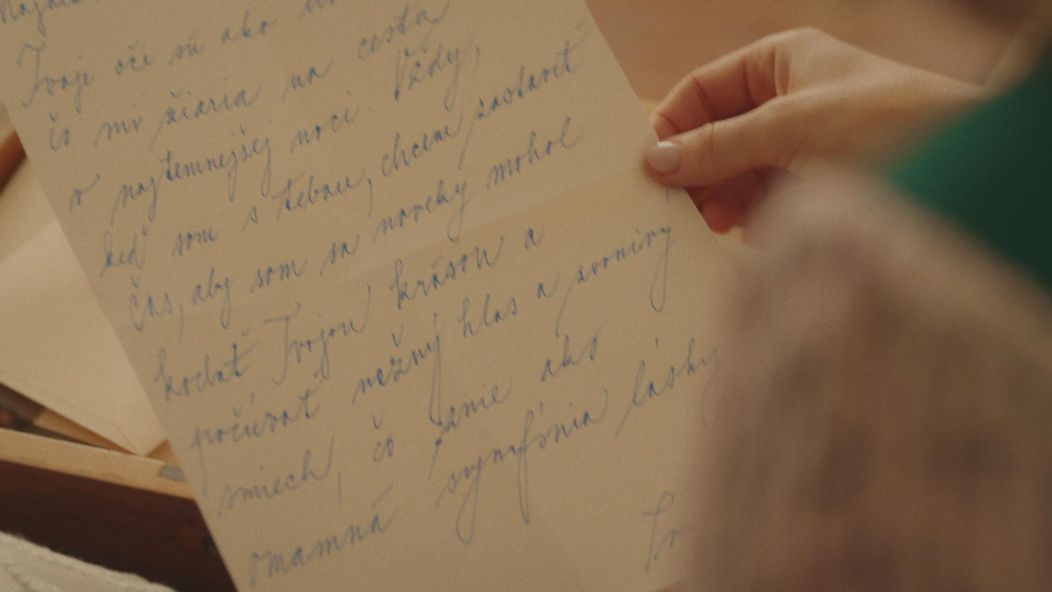 Tvoje oči sú ako
čo mi žiaria na cestu
v najtemnejšej noci. Vždy,
keď som s tebou, chcem zastaviť
čas, aby som sa naveky mohol
kochať Tvojou krásou a
počúvať nežný hlas a zvonivý
smiech, čo znie ako
omamná symfónia lásky